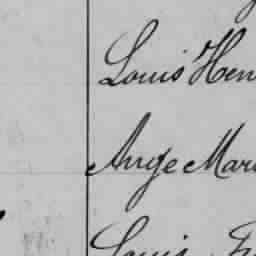 Louis Hen
Ange Mari
Louis Fr